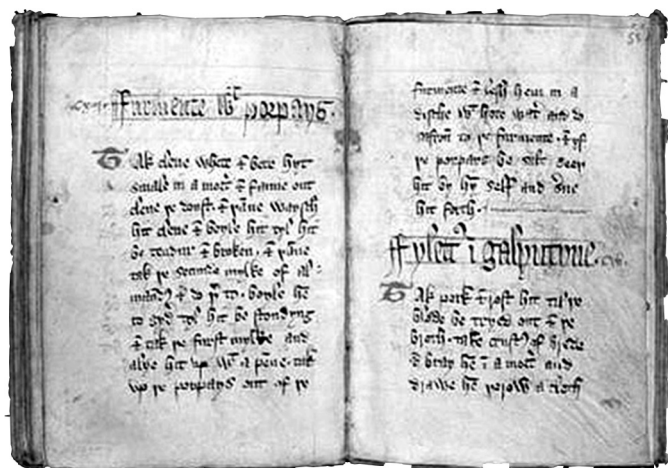 Furmente wt porpays.
Tak clene whete & bete hyt
smale in a morter & fanne out
clene þe doust. & þanne waysch
hit clene & boyle hit tyl hit
be tendur & broken. & þanne
tak þe secunde mylke of al-
maundes & do þer to. boyle hem
to gydere tyl hit be stondyng
& tak þe furst mylke and
alye hit up wt a penne. tak
up þe porpays out of þe
furmente & lesh hem in a
dische wt hote water and do
safron to þe furmente. & yf
þe porpays be salt seeþ
hit by hym self and serue
hit forth.
Fylett i galyntyne.
Tak pork & rost hit til þe
blode be tryed out & þe
broth. take crustes of brede
& bray hem i a morter and
drawe hem þorow a cloth